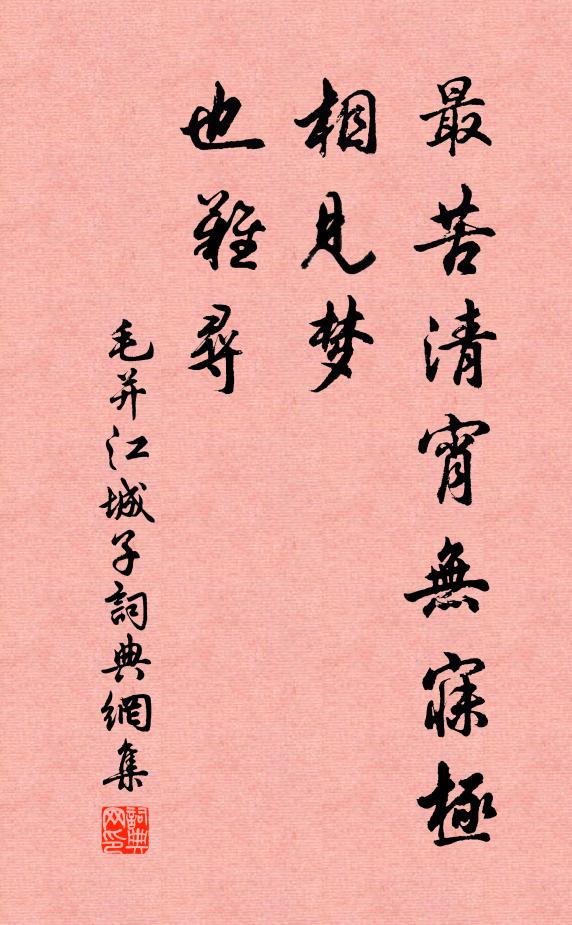 最苦清宵無寐極
相見梦
也難尋
毛并江城子詞典網集
詞典网印